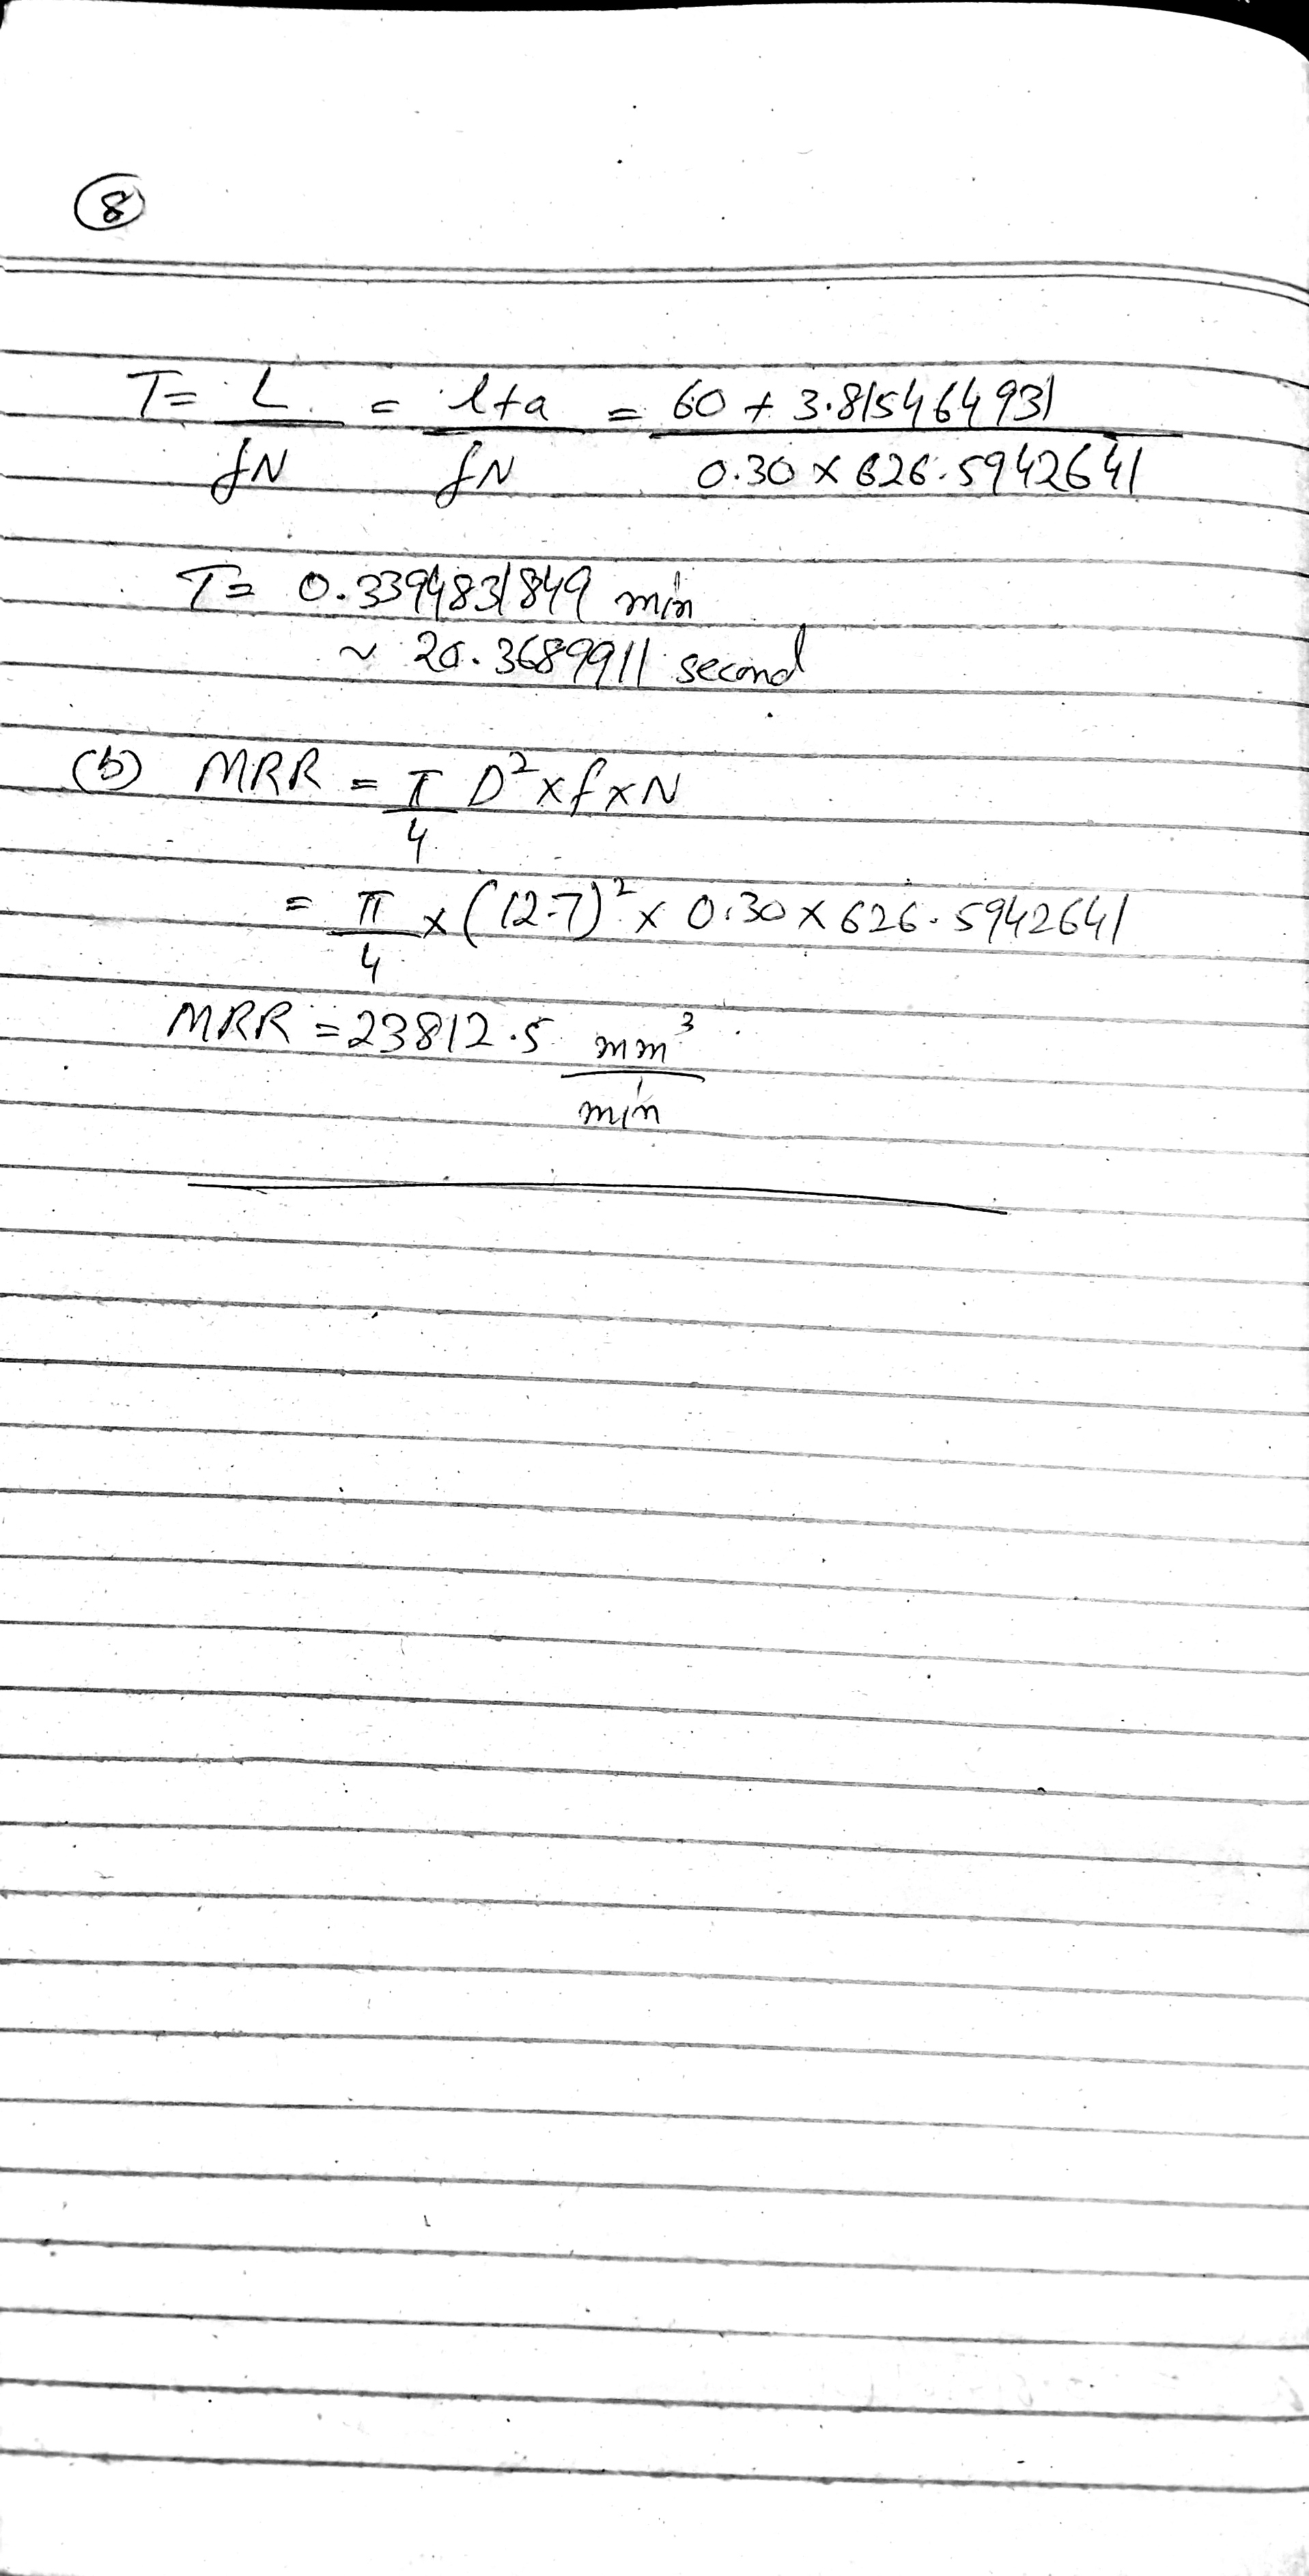 8
T = L / fN = l+a / fN = 60 + 3.815464931 / 0.30 × 626.5942641
T = 0.3394831849 min
~ 20.3689911 second
(b) MRR = π/4 D² × f × N
= π/4 × (12.7)² × 0.30 × 626.5942641
MRR = 23812.5 mm³/min